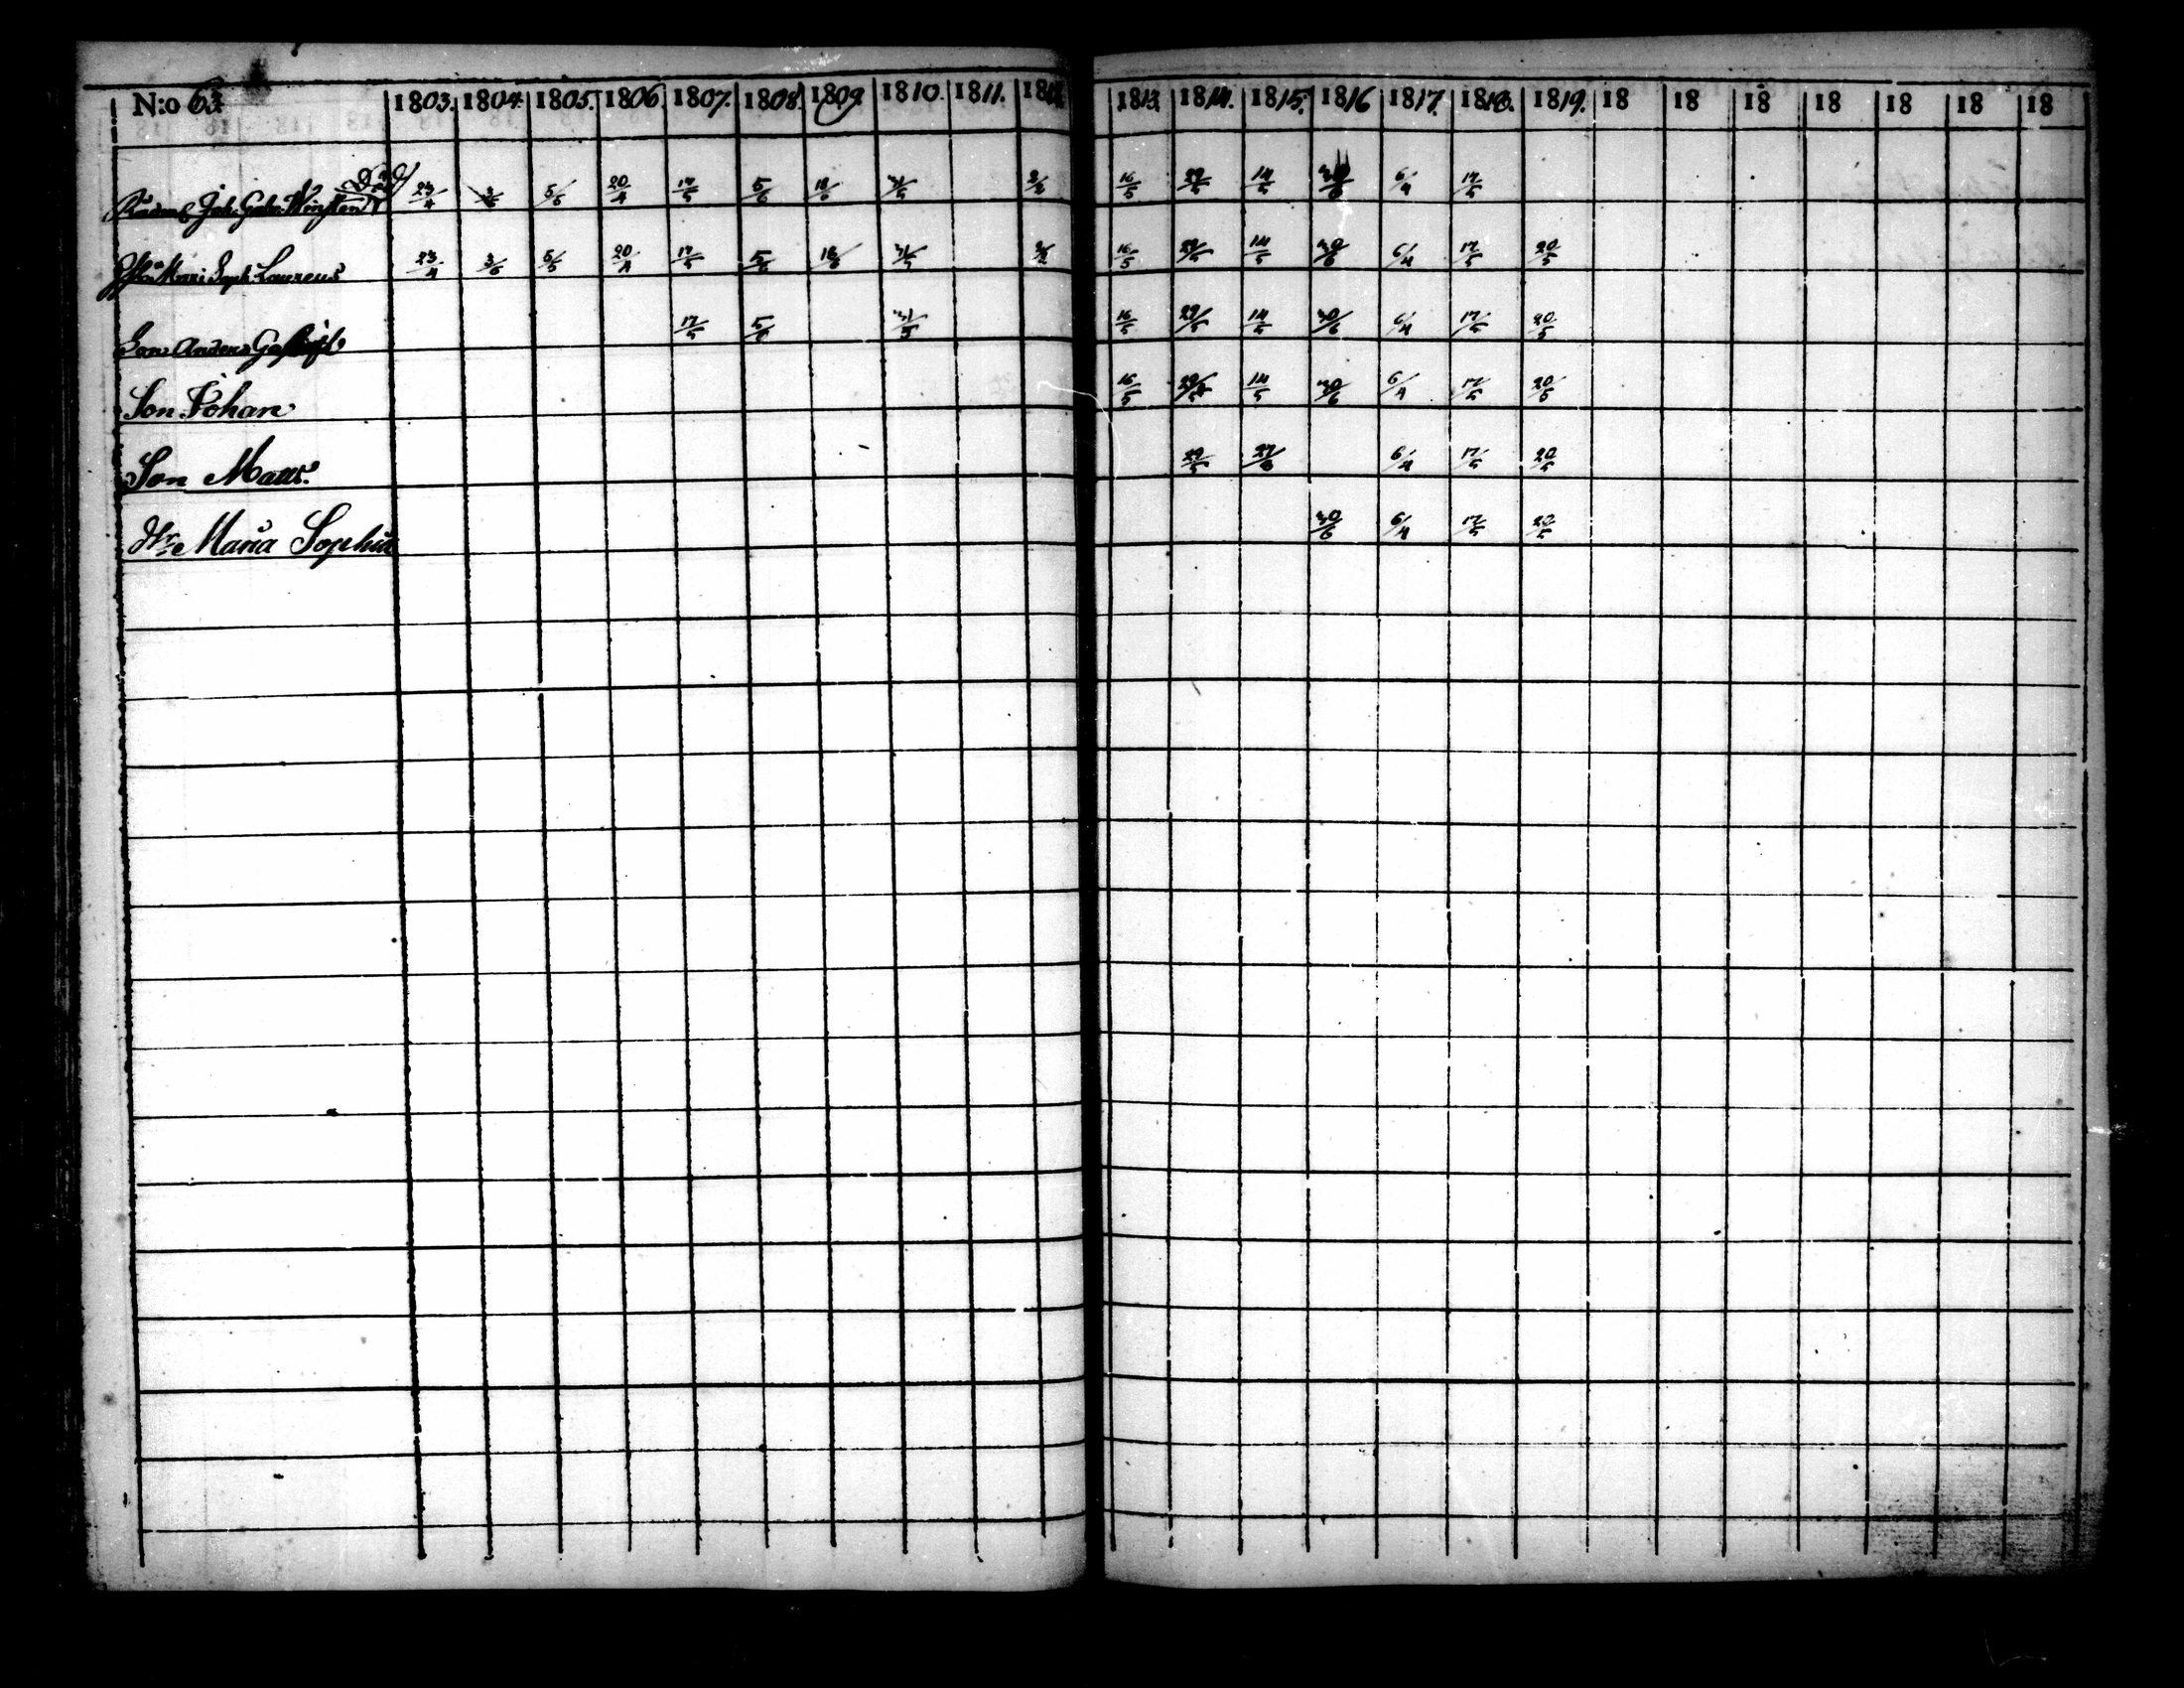 N:o 63 1803. 1804. 1805. 1806. 1807. 1808. 1809. 1810. 1811. 1812. 1813. 1814. 1815. 1816 1817. 1818. 1819. 18 18 18 18 18 18 18
Joh. Gabr. 23/4 3/6 5/5 20/4 17/5 5/6 18/6 31/5 16/5 29/5 14/5 30/6 6/4 17/5
Mari Soph. Laureus 23/4 3/6 5/5 20/4 17/5 5/6 18/6 31/5 16/5 29/5 14/5 30/6 6/4 17/5 20/5
Son Anders 17/5 5/6 31/5 16/5 29/5 14/5 30/6 6/4 17/5 20/5
Son Johan 16/5 29/5 14/5 30/6 6/4 17/5 20/5
Son 29/5 6/4 17/5 20/5
Dr. Maria Sophia 30/6 6/4 17/5 20/5